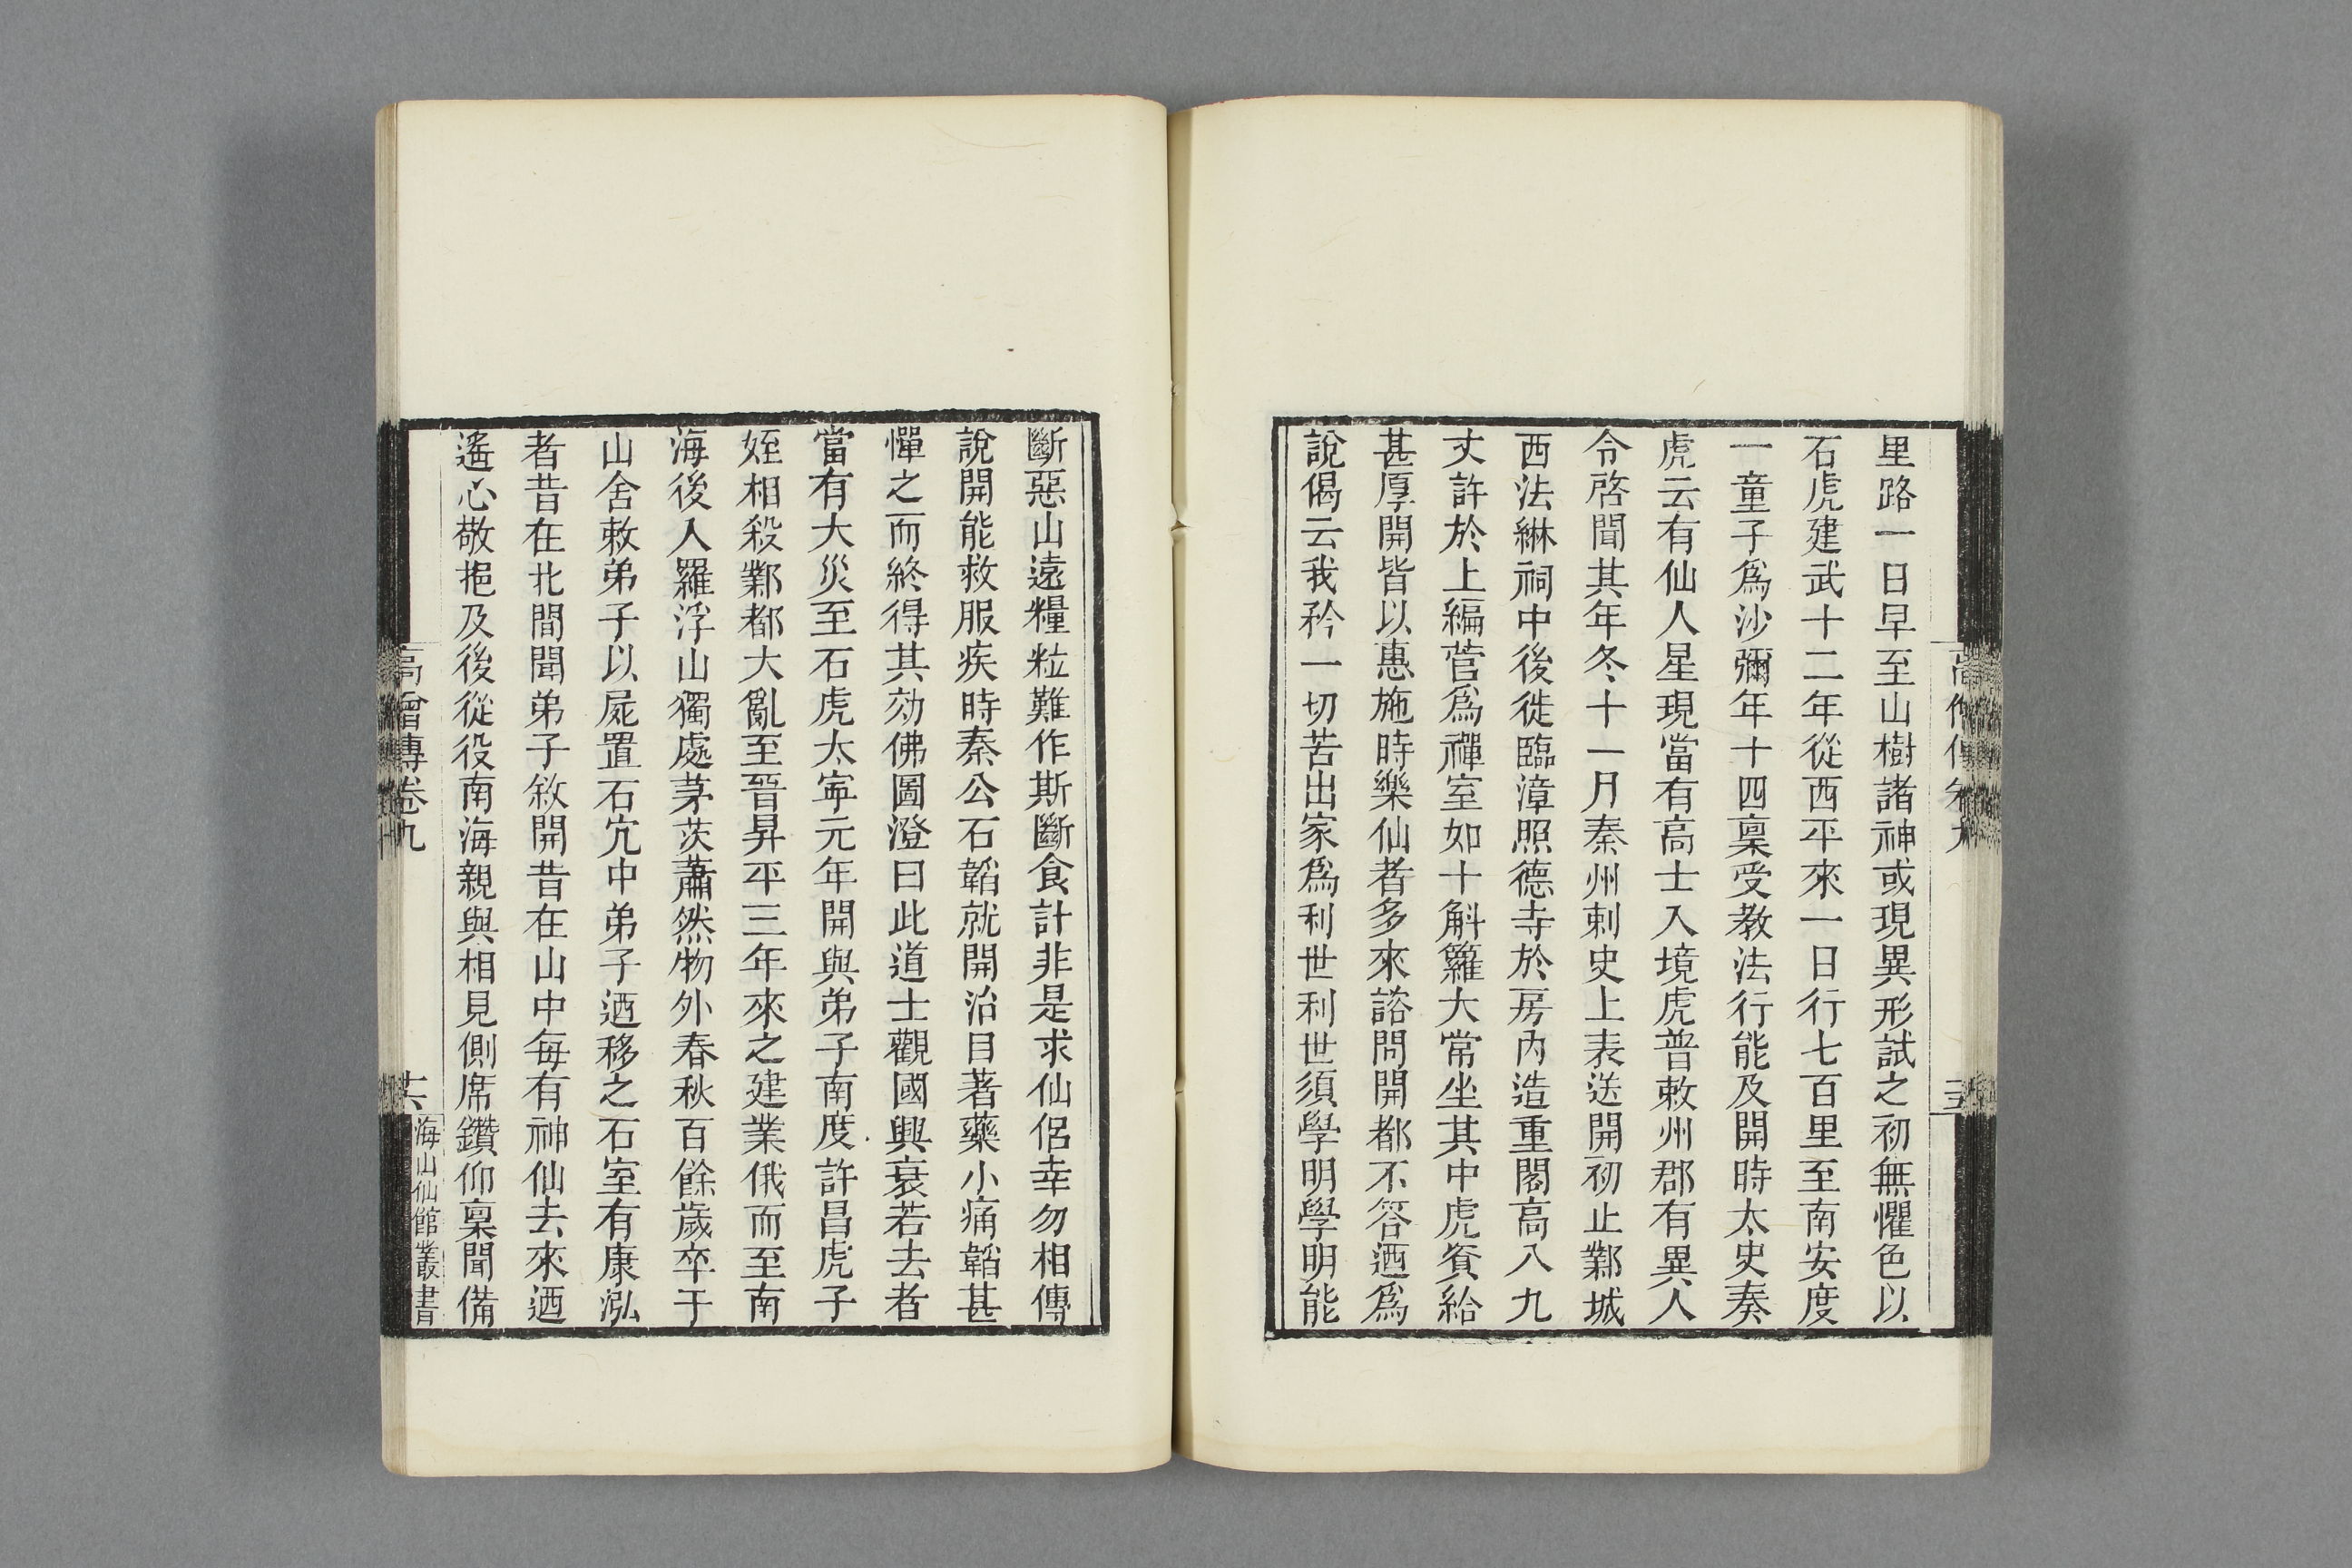 里路一日早至山樹諸神或現異形試之初無懼色以
石虎建武十二年從西平來一日行七百里至南安度
一童子爲沙彌年十四稟受教法行能及開時太史奏
虎云有仙人星現當有高士入境虎普敕州郡有異人
令啓聞其年冬十一月秦州刺史上表送開初止鄴城
西法綝祠中後徙臨漳照德寺於房內造重閣高八九
丈許於上編菅爲禪室如十斛籮大常坐其中虎資給
甚厚開皆以惠施時樂仙者多來諮問開都不答迺爲
說偈云我矜一切苦出家爲利世利世須學明學明能
斷惡山遠糧粒難作斯斷食計非是求仙侶幸勿相傳
說開能救服疾時秦公石韜就開治目著藥小痛韜甚
憚之而終得其効佛圖澄曰此道士觀國興衰若去者
當有大災至石虎太寧元年開與弟子南度許昌虎子
姪相殺鄴都大亂至晉昇平三年來之建業俄而至南
海後入羅浮山獨處茅茨蕭然物外春秋百餘歲卒于
山舍敕弟子以屍置石穴中弟子迺移之石室有康泓
者昔在北間聞弟子敘開昔在山中每有神仙去來迺
遙心敬挹及後從役南海親與相見側席鑽仰稟聞備
高僧傳卷九
十六
海山仙館叢書